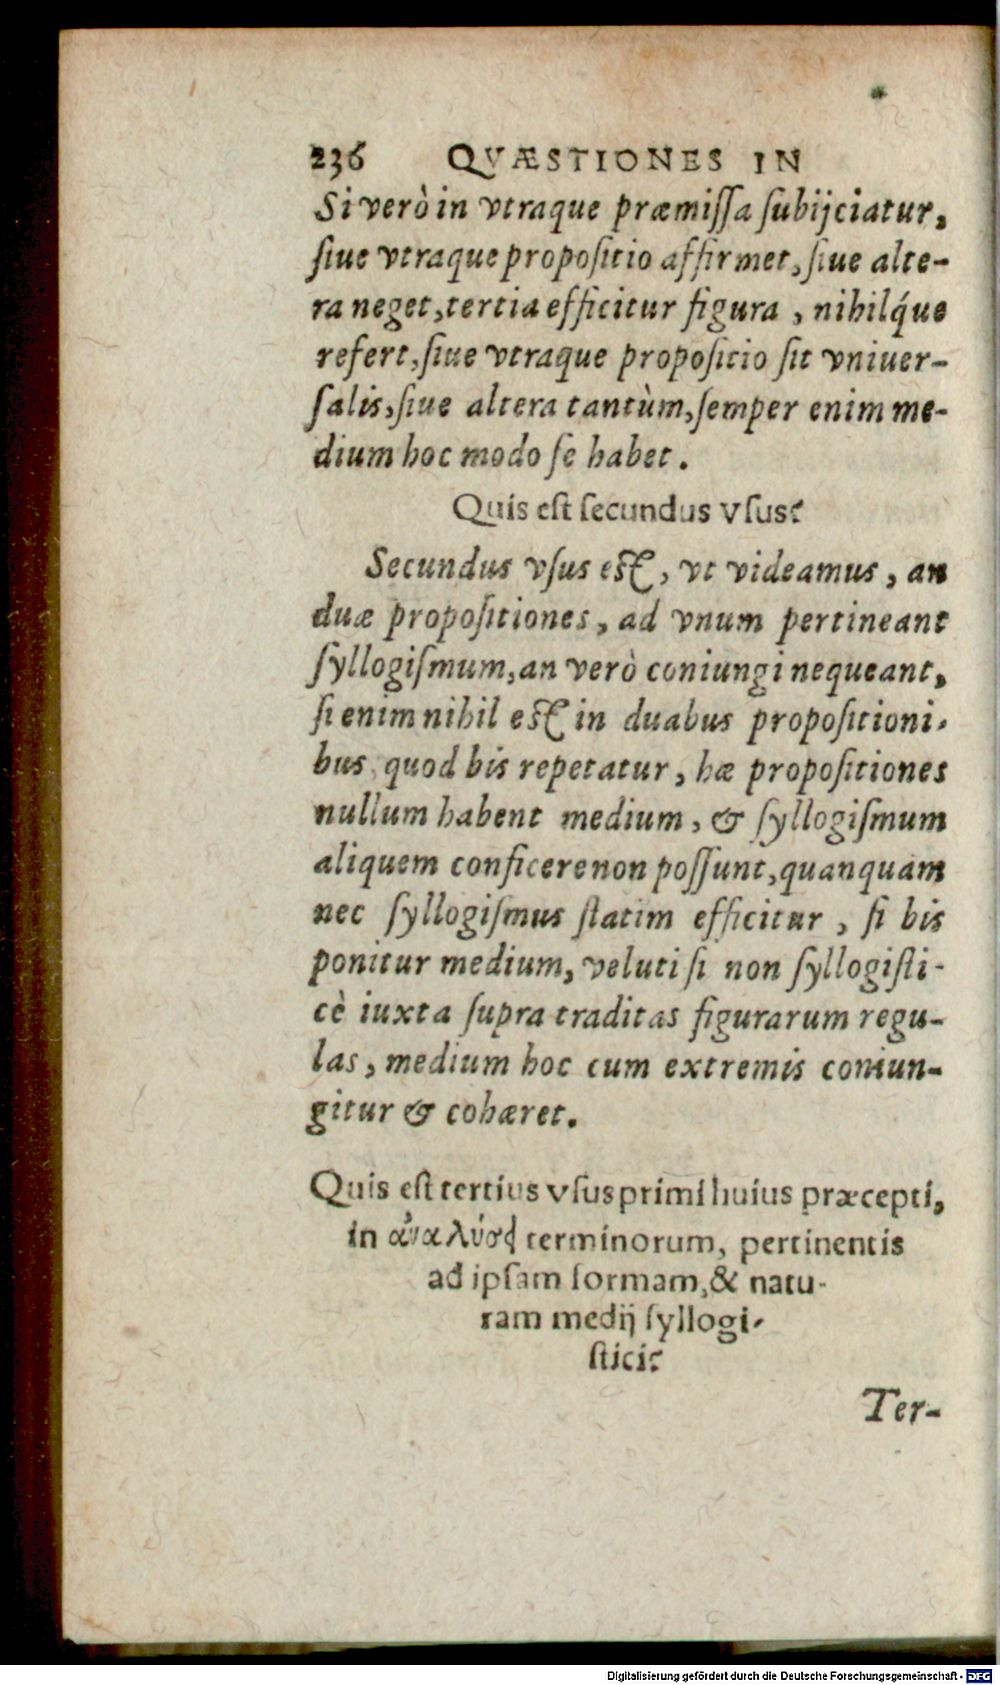 236 QVÆSTIONES IN
Si verò in vtraque præmiſſa ſubijciatur,
ſiue vtraque propoſitio affirmet, ſiue alte-
ra neget, tertia efficitur figura, nihilq́ue
refert, ſiue vtraque propoſitio ſit vniuer-
ſalis, ſiue altera tantùm, ſemper enim me-
dium hoc modo ſe habet.
Quis eſt ſecundus vſus?
Secundus vſus eſt, vt videamus, an
duæ propoſitiones, ad vnum pertineant
ſyllogiſmum, an verò coniungi nequeant,
ſi enim nihil eſt in duabus propoſitioni-
bus, quod bis repetatur, hæ propoſitiones
nullum habent medium, & ſyllogiſmum
aliquem conficere non poſſunt, quanquam
nec ſyllogiſmus ſtatim efficitur, ſi bis
ponitur medium, veluti ſi non ſyllogiſti-
cè iuxta ſupra traditas figurarum regu-
las, medium hoc cum extremis coniun-
gitur & cohæret.
Quis eſt tertius vſus primi huius præcepti,
in ἀναλύσει terminorum, pertinentis
ad ipſam formam, & natu-
ram medij ſyllogi-
ſtici?
Ter-
Digitalisierung gefördert durch die Deutsche Forschungsgemeinschaft - DFG